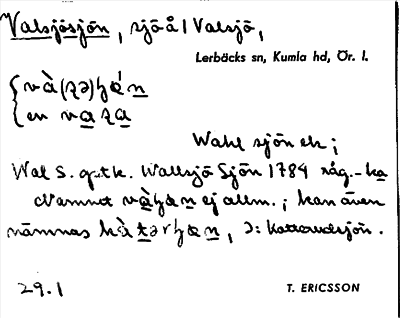 Valsjösjön, sjö å l Valsjö,
Lerbäcks sn, Kumla hd, Ör. l.
en
Wahl sjön ek;
Wal S. gstk. Wallsjö Sjön 1784 råg.- ka
namnet ej allm.; kan även
nämnas , ɔ: Katterudsjön.
29.1
T. ERICSSON